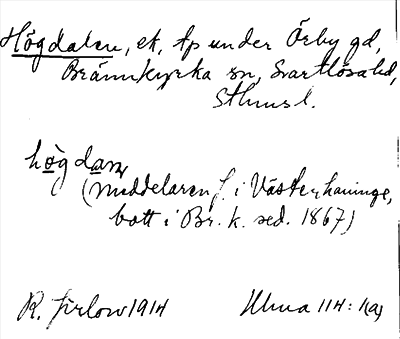 Högdalen, et, tp under Örby gd,
Brännkyrka sn, Svartlösa hd,
Sthmsl.
högdan
(meddelaren f. i Västerhaninge,
bott i Br. k. sed. 1867)
R. Jirlow 1914 Ulma 114: 1(a)